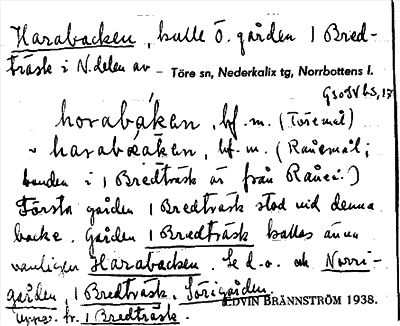 Harabacken, kulle Ö. gården 1 Bred-
träsk i N.delen av – Töre sn, Nederkalix tg, Norrbottens l.
horabákan, bf. m. (Töremål)
harabákan, bf. m. (Rånemål;
bonden i 1 Bredträsk är från Råneå.)
Första gården 1 Bredträsk stod vid denna
backe. Gården 1 Bredträsk kallas ännu
vanligen Harabacken. Se d.o. och Norri-
gården, 1 Bredträsk, Sörigården.
EDVIN BRÄNNSTRÖM 1938.
Uppg. fr. 1 Bredträsk.